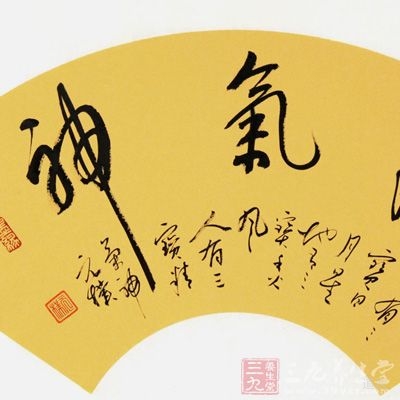 氣神
有三
寶日
月星
地有三
寶水火
風
人有三
寶精
氣神
三九
养生堂
三九养生堂